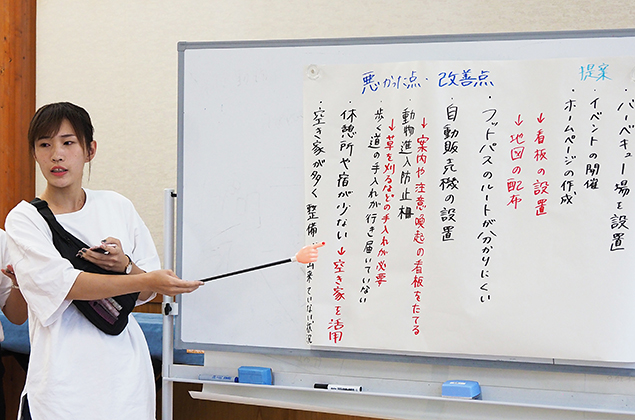 悪かった点・改善点
提案
・バーベキュー場を設置
・イベントの開催
・ホームページの作成
↓看板の設置
↓地図の配布
・フットパスのルートが分かりにくい
・自動販売機の設置
↓案内や注意喚起の看板をたてる
・動物進入防止柵
↓草を刈るなどの手入れが必要
・歩く道の手入れが行き届いていない
・休憩所や宿が少ない ↓空き家を活用
・空き家が多く整備 出来ていない状況